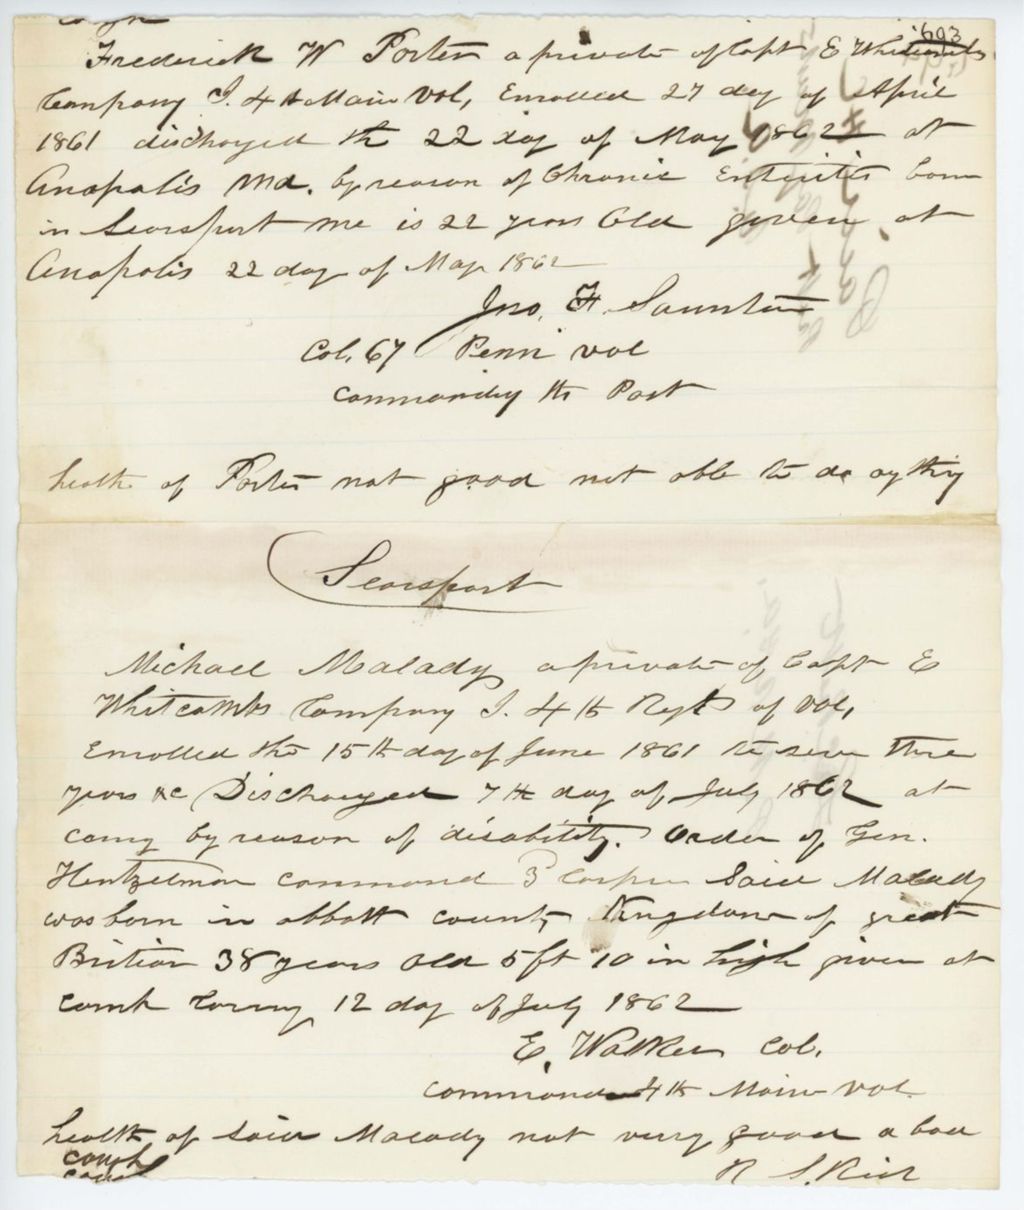 Frederick W Porter a private of Capt E Whitcombs
Company I. 4th Main Vol, Enrolled 27 day of April
1861 discharged the 22 day of May 1862 at
Anapolis Md. by reason of Chronic Enteritis born
in Searsport Me is 22 years Old given at
Anapolis 22 day of May 1862
Jno. F. Staunton
Col. 67 Penn vol
commanding the Post
health of Porter not good not able to do aything
Searsport
Michael Malady a private of Capt E
Whitcombs Company I. 4th Regt of Vol,
Enrolled the 15th day of June 1861 to serve three
years &c Discharged 7th day of July 1862 at
camp by reason of disability. Order of Gen.
Hentzelman command 3 Corps Said Malady
was born in abbott county Kingdom of great
Britian 38 years old 5 ft 10 in high given at
12 day of July 1862
E. Walker Col.
command 4th Main Vol.
health of said Malady not very good a bad
cough
R S. Rich